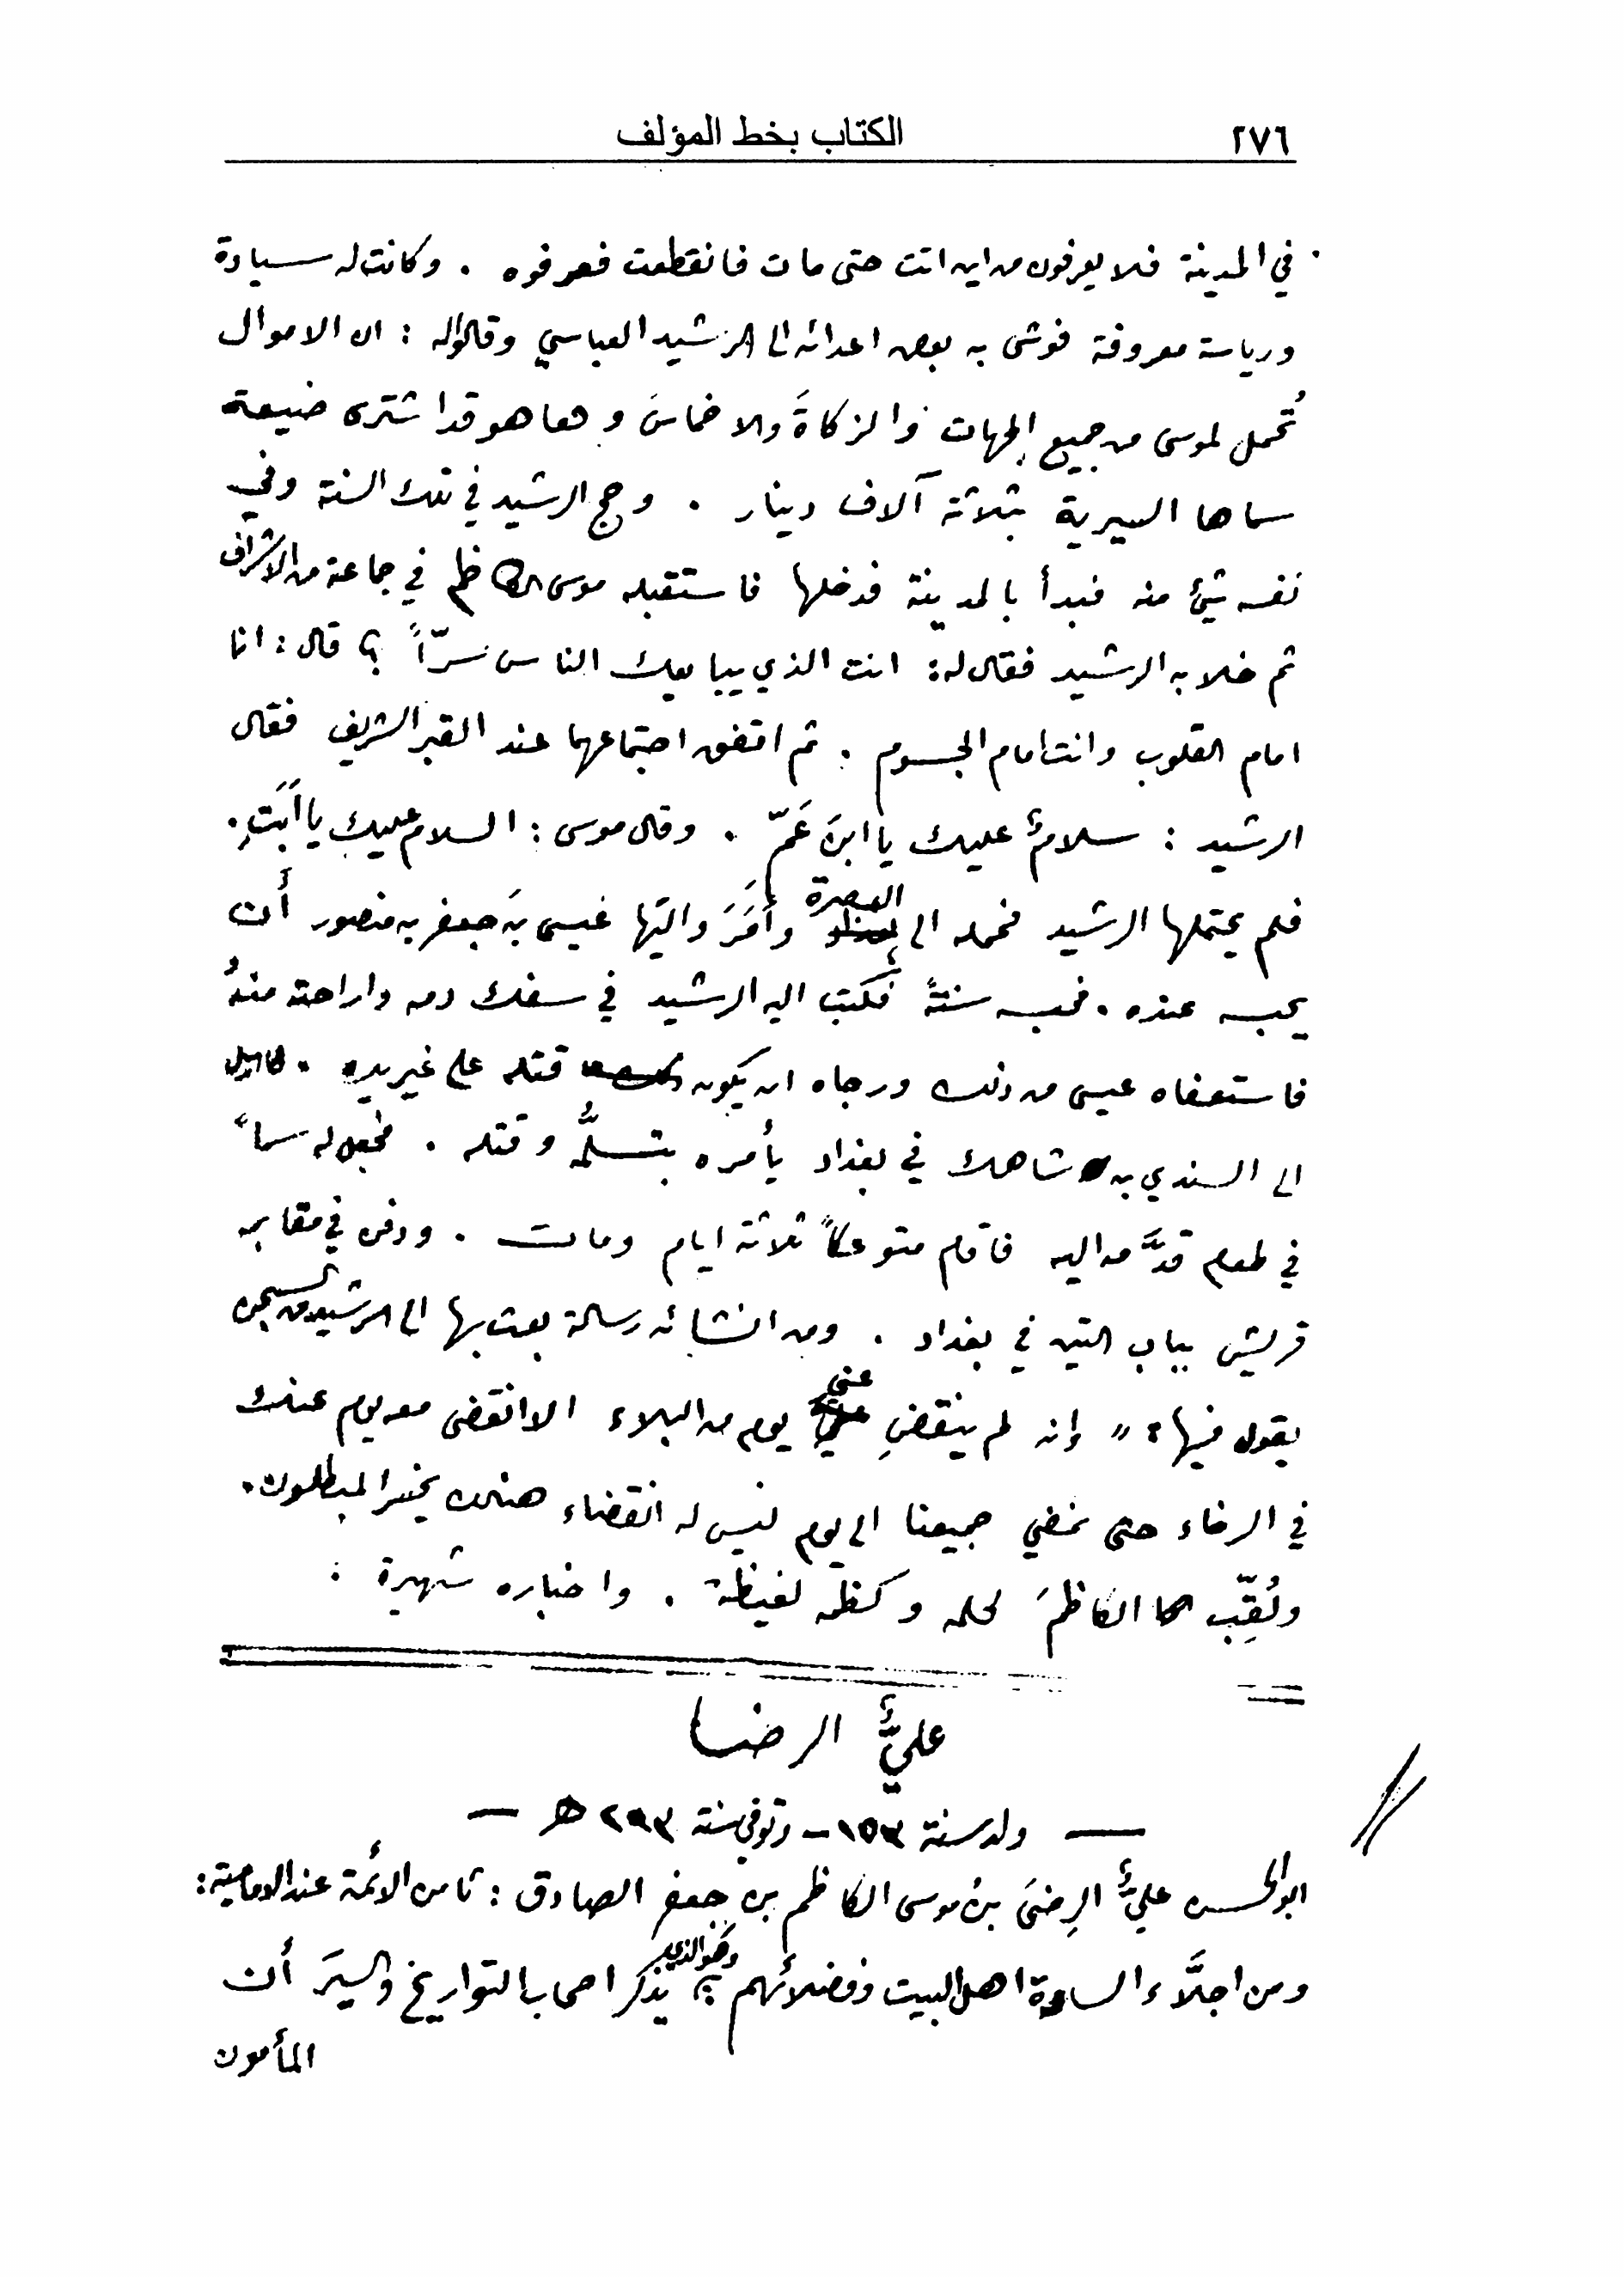 ٢٧٦ الكتاب بخط المؤلف
في المدينة فلا يعرفون من اين اتت حتى مات فانقطعت فعرفوه . وكانت له سيادة
ورياسة معروفة فوشى به بعض اعدائه الى الرشيد العباسي وقالوا له : ان الاموال
تُحمل لموسى من جميع الجهات والزكاةَ والاخماسَ وها هو قد اشترى ضيعة
سماها اليسيرية بثلاثة آلاف دينار . وحج الرشيد في تلك السنة وفي
نفسه شيئ منه فبدأ بالمدينة فدخلها فاستقبله موسى الكاظم في جماعة من الاشراف
ثم خلا به الرشيد فقال له : انت الذي يبايعك الناس سرّاً ؟ قال : انا
امام القلوب وانت امام الجسوم . ثم اتفق اجتماعهما عند القبر الشريف فقال
الرشيد : سلامٌ عليك يا ابنَ عَمّ . وقال موسى : السلام عليك يا أَبَتِ .
فلم يحتملها الرشيد فحمله الى البصرة وأَمَرَ واليَها عيسى بنَ جعفر بن منصور أن
يحبسه عنده . فحبسه سنةً فكتب اليه الرشيد في سفك دمه واراحته منهُ
فاستعفاه عيسى من ذلك ورجاه ان يكون قتله على غير يده .
الى السندي بن شاهك في بغداد يأمره بتسلُّمه وقتله . فجعل له سماً
في طعام قدَّمه اليه فاقام متوعكاً ثلاثة ايام ومات . ودفن في مقابر
قريش بباب التين في بغداد . ومن انشائه رسالة بعث بها الى الرشيد من السجن
يقول فيها : " إنه لم ينقضِ عني يوم من البلاء الا انقضى معه يوم عنك
في الرخاء حتى نمضي جميعنا الى يوم ليس له انقضاء هنالك يخسر المبطلون .
ولُقِّب الكاظمَ لحلمه وكظمه لغيظه . واخباره شهيرة :
عليٌّ الرضا
— ولد سنة ١٥٣ - وتوفي سنة ٢٩٣ هـ —
ابو الحسن عليٌّ الرِضىَ بنُ موسى الكاظم بن جعفر الصادق : ثامن الائمة عند الامامية :
ومن اجلَّاء السادة اهل البيت وفضلائهم وهو الذي يذكر اصحاب التواريخ والسِيَر أن
المأمون